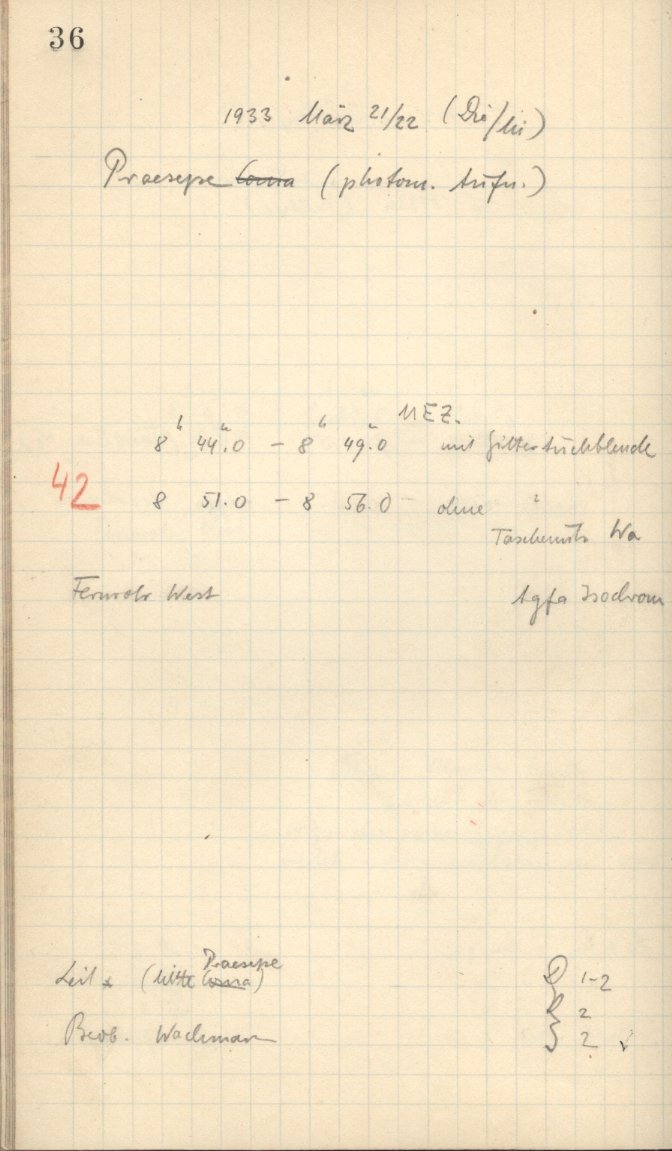 36
1933 März 21/22 (Di/Mi)
Praesepe Coma (photom. Aufn.)
8h 44m.0 – 8h 49m.0 MEZ. mit Gitter
42
8 51.0 – 8 56.0 – ohne "
Taschenuhr Wa
Fernrohr West Agfa Isochrom
Praesepe
Leit * (Mitte Coma) D 1-2
R 2
Beob. Wachmann S 2 ✓